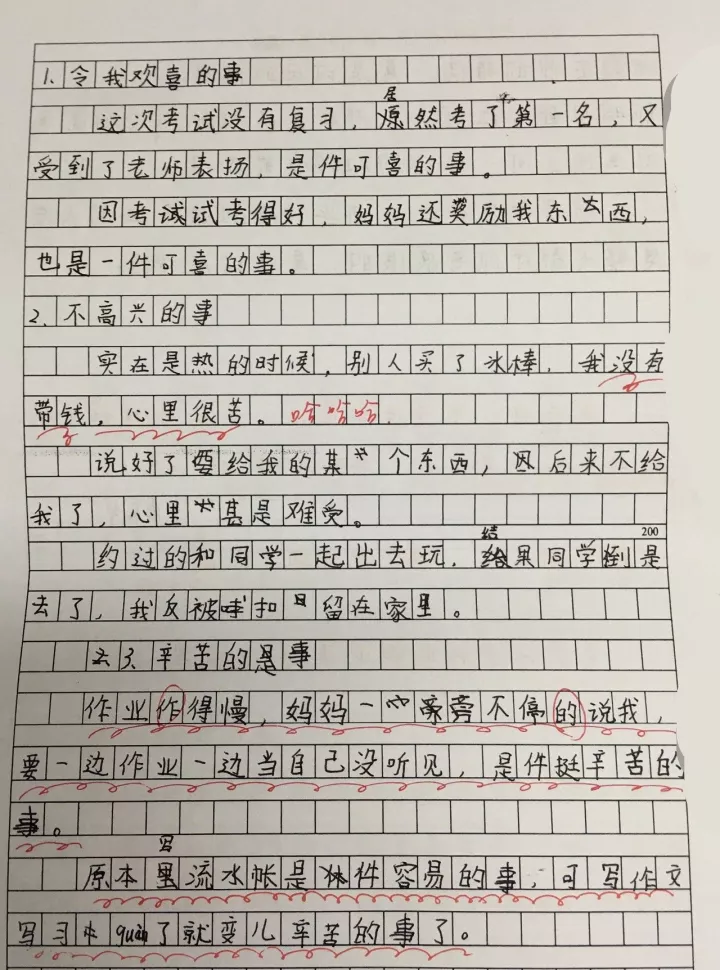 1. 令我欢喜的事
这次考试没有复习，居然考了第一名，又
受到了老师表扬，是件可喜的事。
因考试试考得好，妈妈还奖励我东西，
也是一件可喜的事。
2. 不高兴的事
实在是热的时候，别人买了冰棒，我没有
带钱，心里很苦。哈哈哈
说好了要给我的某个东西，因后来不给
我了，心里甚是难受。
200
约过的和同学一起出去玩，结果同学倒是
去了，我反被扣留在家里。
3、辛苦的事
作业作得慢，妈妈一旁不停的说我，
要一边作业一边当自己没听见，是件挺辛苦的
事。
原本写流水帐是件容易的事，可写作文
写习guàn了就变儿辛苦的事了。